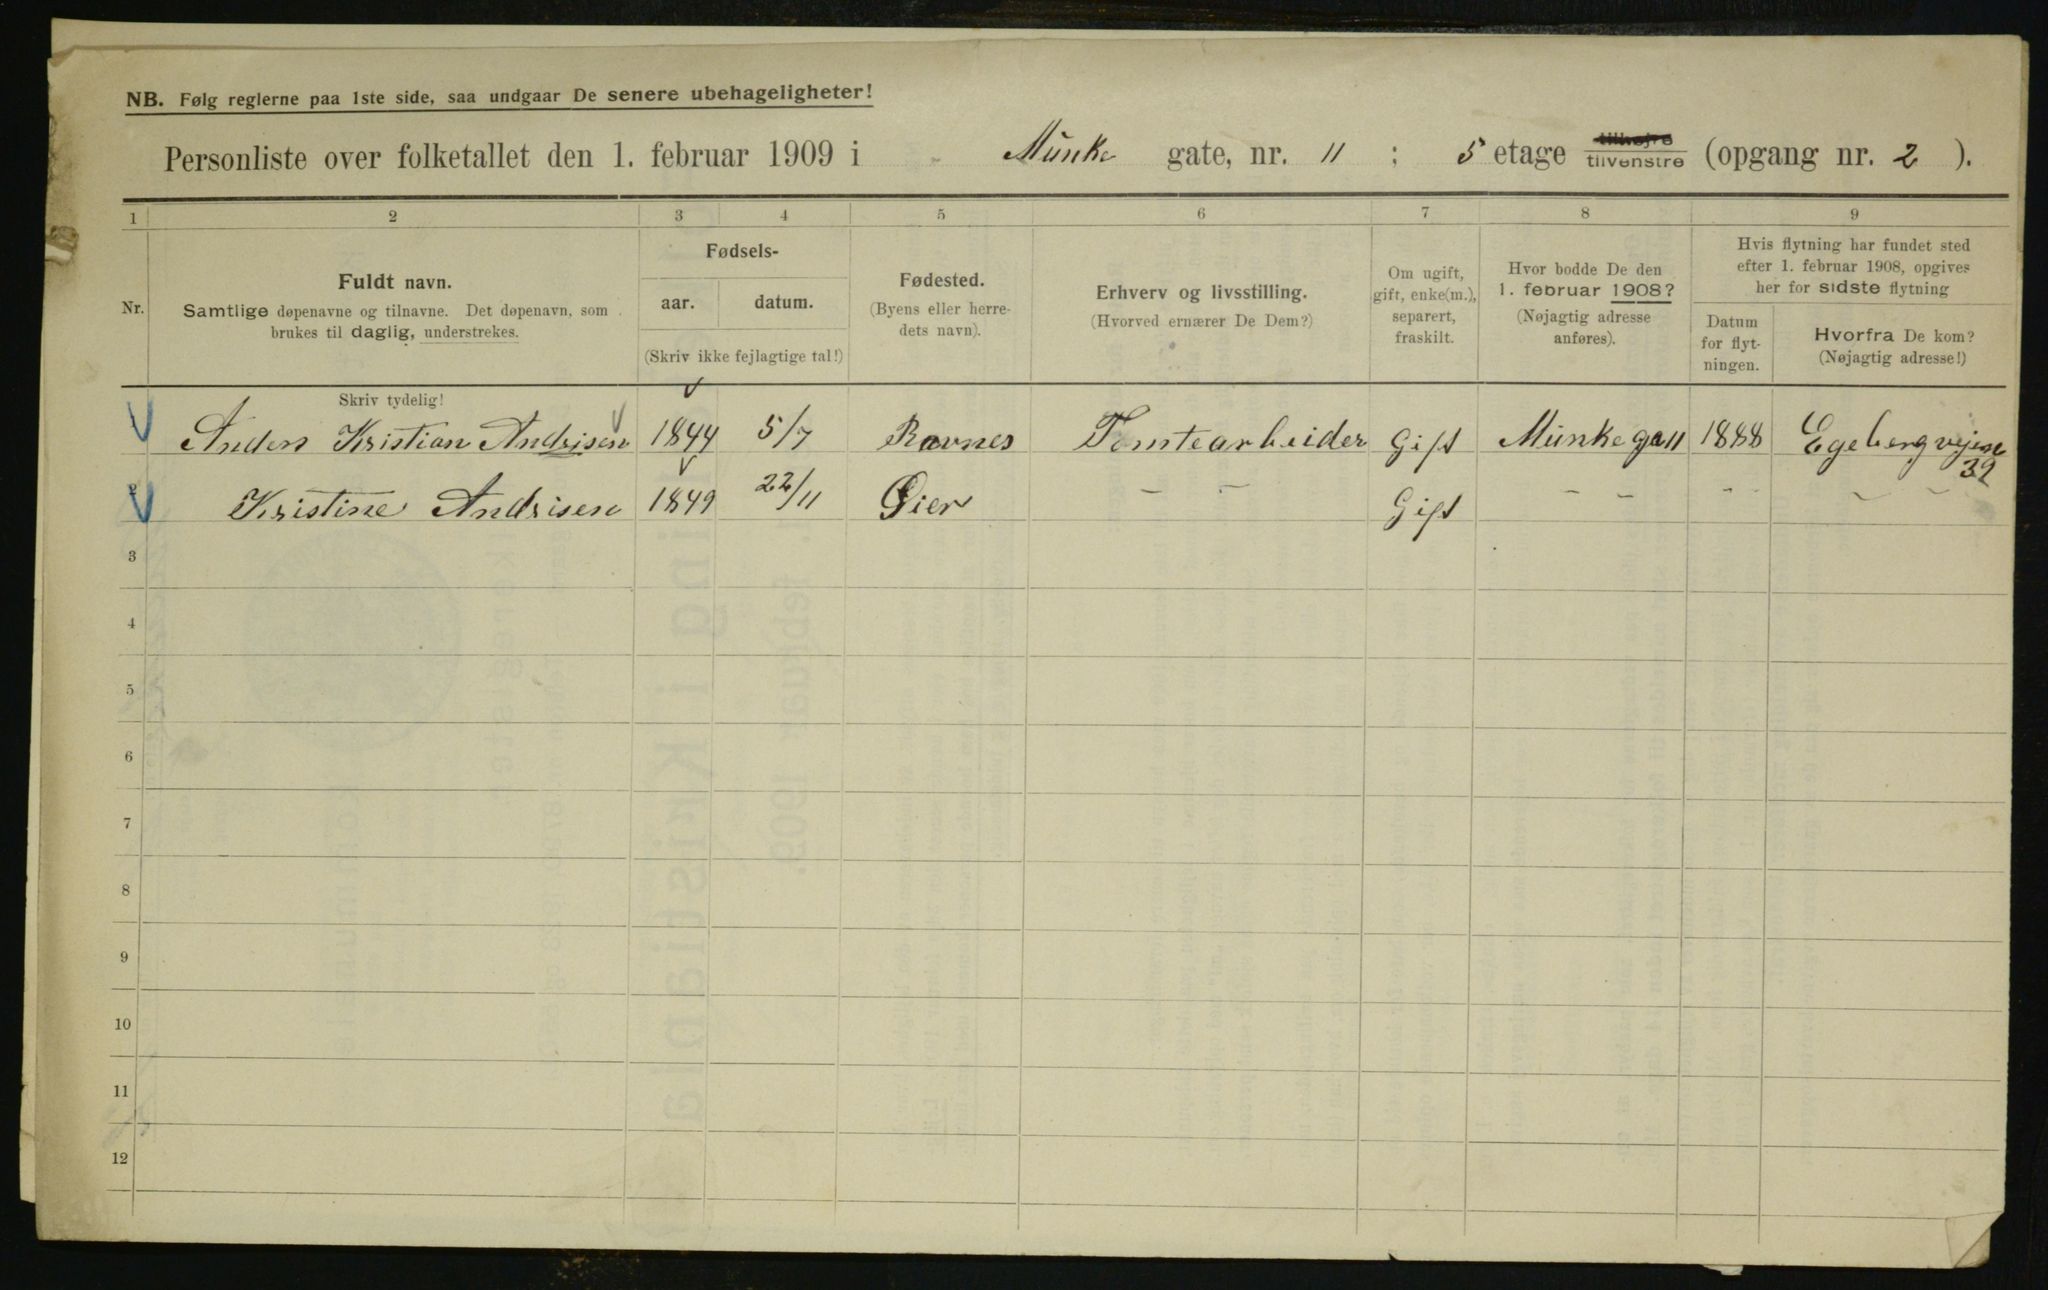 NB. Følg reglerne paa 1ste side, saa undgaar De senere ubehageligheter!
Personliste over folketallet den 1. februar 1909 i Munke gate, nr. 11 ; 5 etage tilhøjre tilvenstre (opgang nr. 2 ).
1 2 3 4 5 6 7 8 9
Nr.
Fuldt navn.
Samtlige døpenavne og tilnavne. Det døpenavn, som
brukes til daglig, understrekes.
Fødsels-
aar. datum.
(Skriv ikke fejlagtige tal!)
Fødested.
(Byens eller herre-
dets navn).
Erhverv og livsstilling.
(Hvorved ernærer De Dem?)
Om ugift,
gift, enke(m.),
separert,
fraskilt.
Hvor bodde De den
1. februar 1908?
(Nøjagtig adresse
anføres).
Hvis flytning har fundet sted
efter 1. februar 1908, opgives
her for sidste flytning
Datum
for flyt-
ningen.
Hvorfra De kom?
(Nøjagtig adresse!)
Skriv tydelig!
1 Anders Kristian Andrisen 1844 5/7 Ravnes Tomtearbeider Gift Munkega 11 1888 Egebergvejen 32
2 Kristine Andrisen 1849 22/11 Øier – – Gift – – – – – –
3
4
5
6
7
8
9
10
11
12